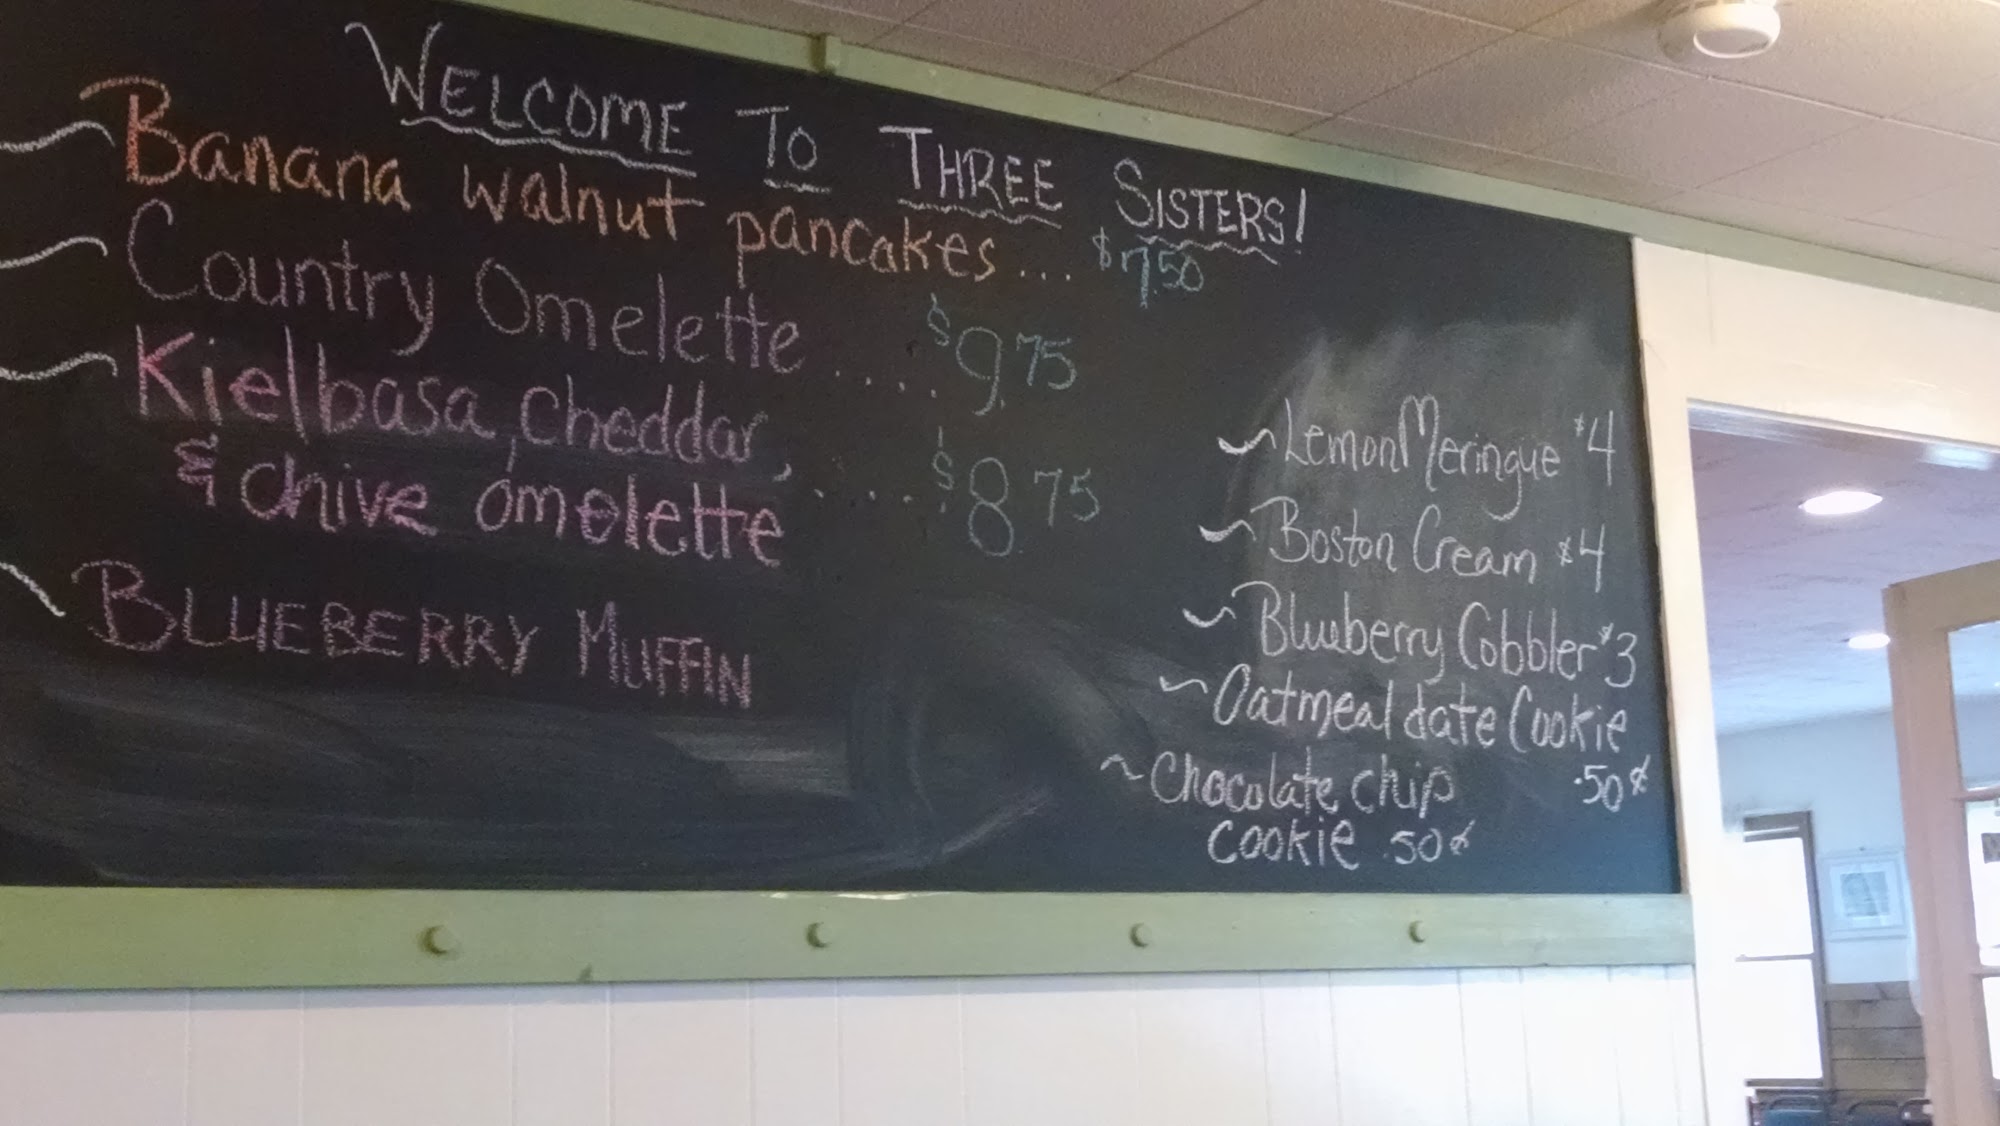 WELCOME TO THREE SISTERS!
Banana walnut pancakes... $7.50
Country Omelette ..... $9.75
Kielbasa, cheddar,
& chive omelette ..... $8.75
BLUEBERRY MUFFIN
~ Lemon Meringue $4
~ Boston Cream $4
~ Blueberry Cobbler $3
~ Oatmeal date Cookie
.50¢
~ Chocolate chip
cookie .50¢